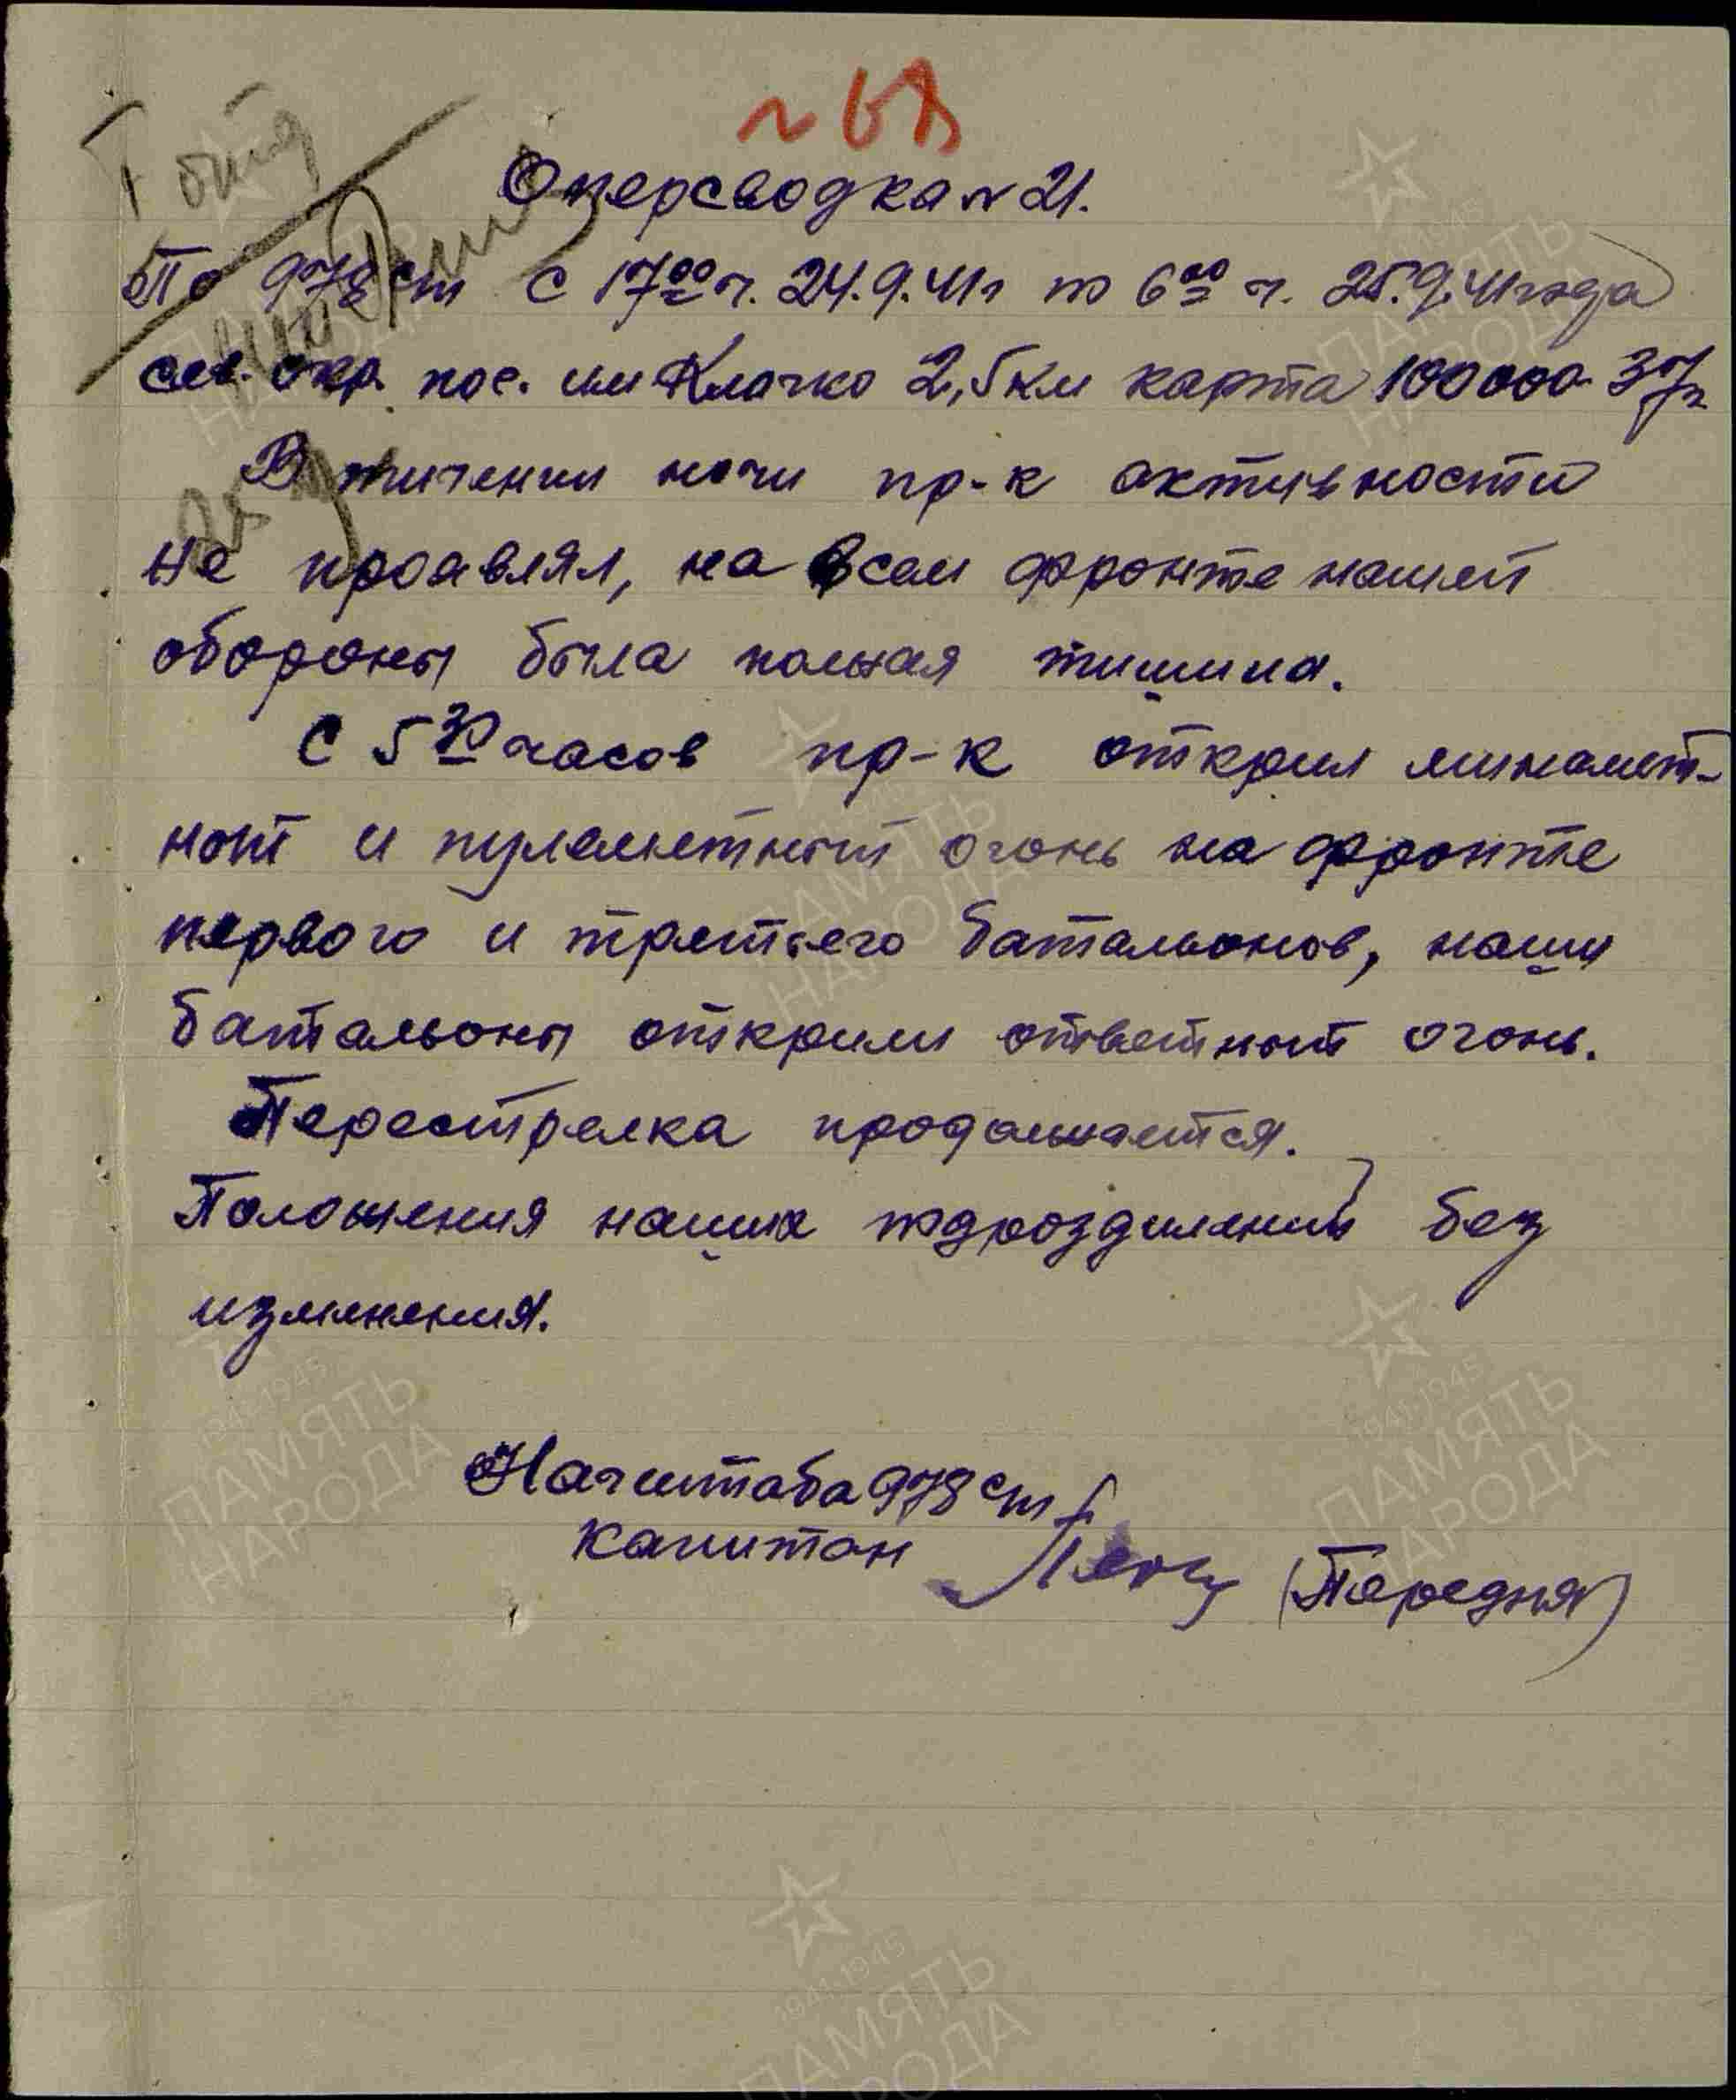 Оперсводка № 21.
По 978 сп с 17 00 ч. 24.9.41г по 6 00 ч. 25.9.41 года
сев. окр. пос. им Клочко 2,5 км карта 100000 37г.
В тичении ночи пр-к активности
не проавлял, на всем фронте нашей
обороны была полная тишина.
С 5 30 часов пр-к открил миномет-
ный и пулеметный огонь на фронте
первого и третьего батальонов, наши
батальоны открили ответный огонь.
Перестрелка продолжается.
Положения наших подрозделений без
изменения.
Начштаба 978 сп
капитан (Передня)
1941-1945
ПАМЯТЬ
НАРОДА